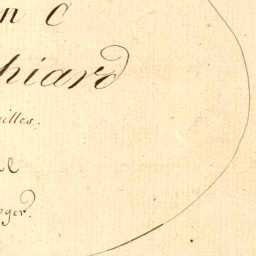 n C
hiard
illes.
e
oger.